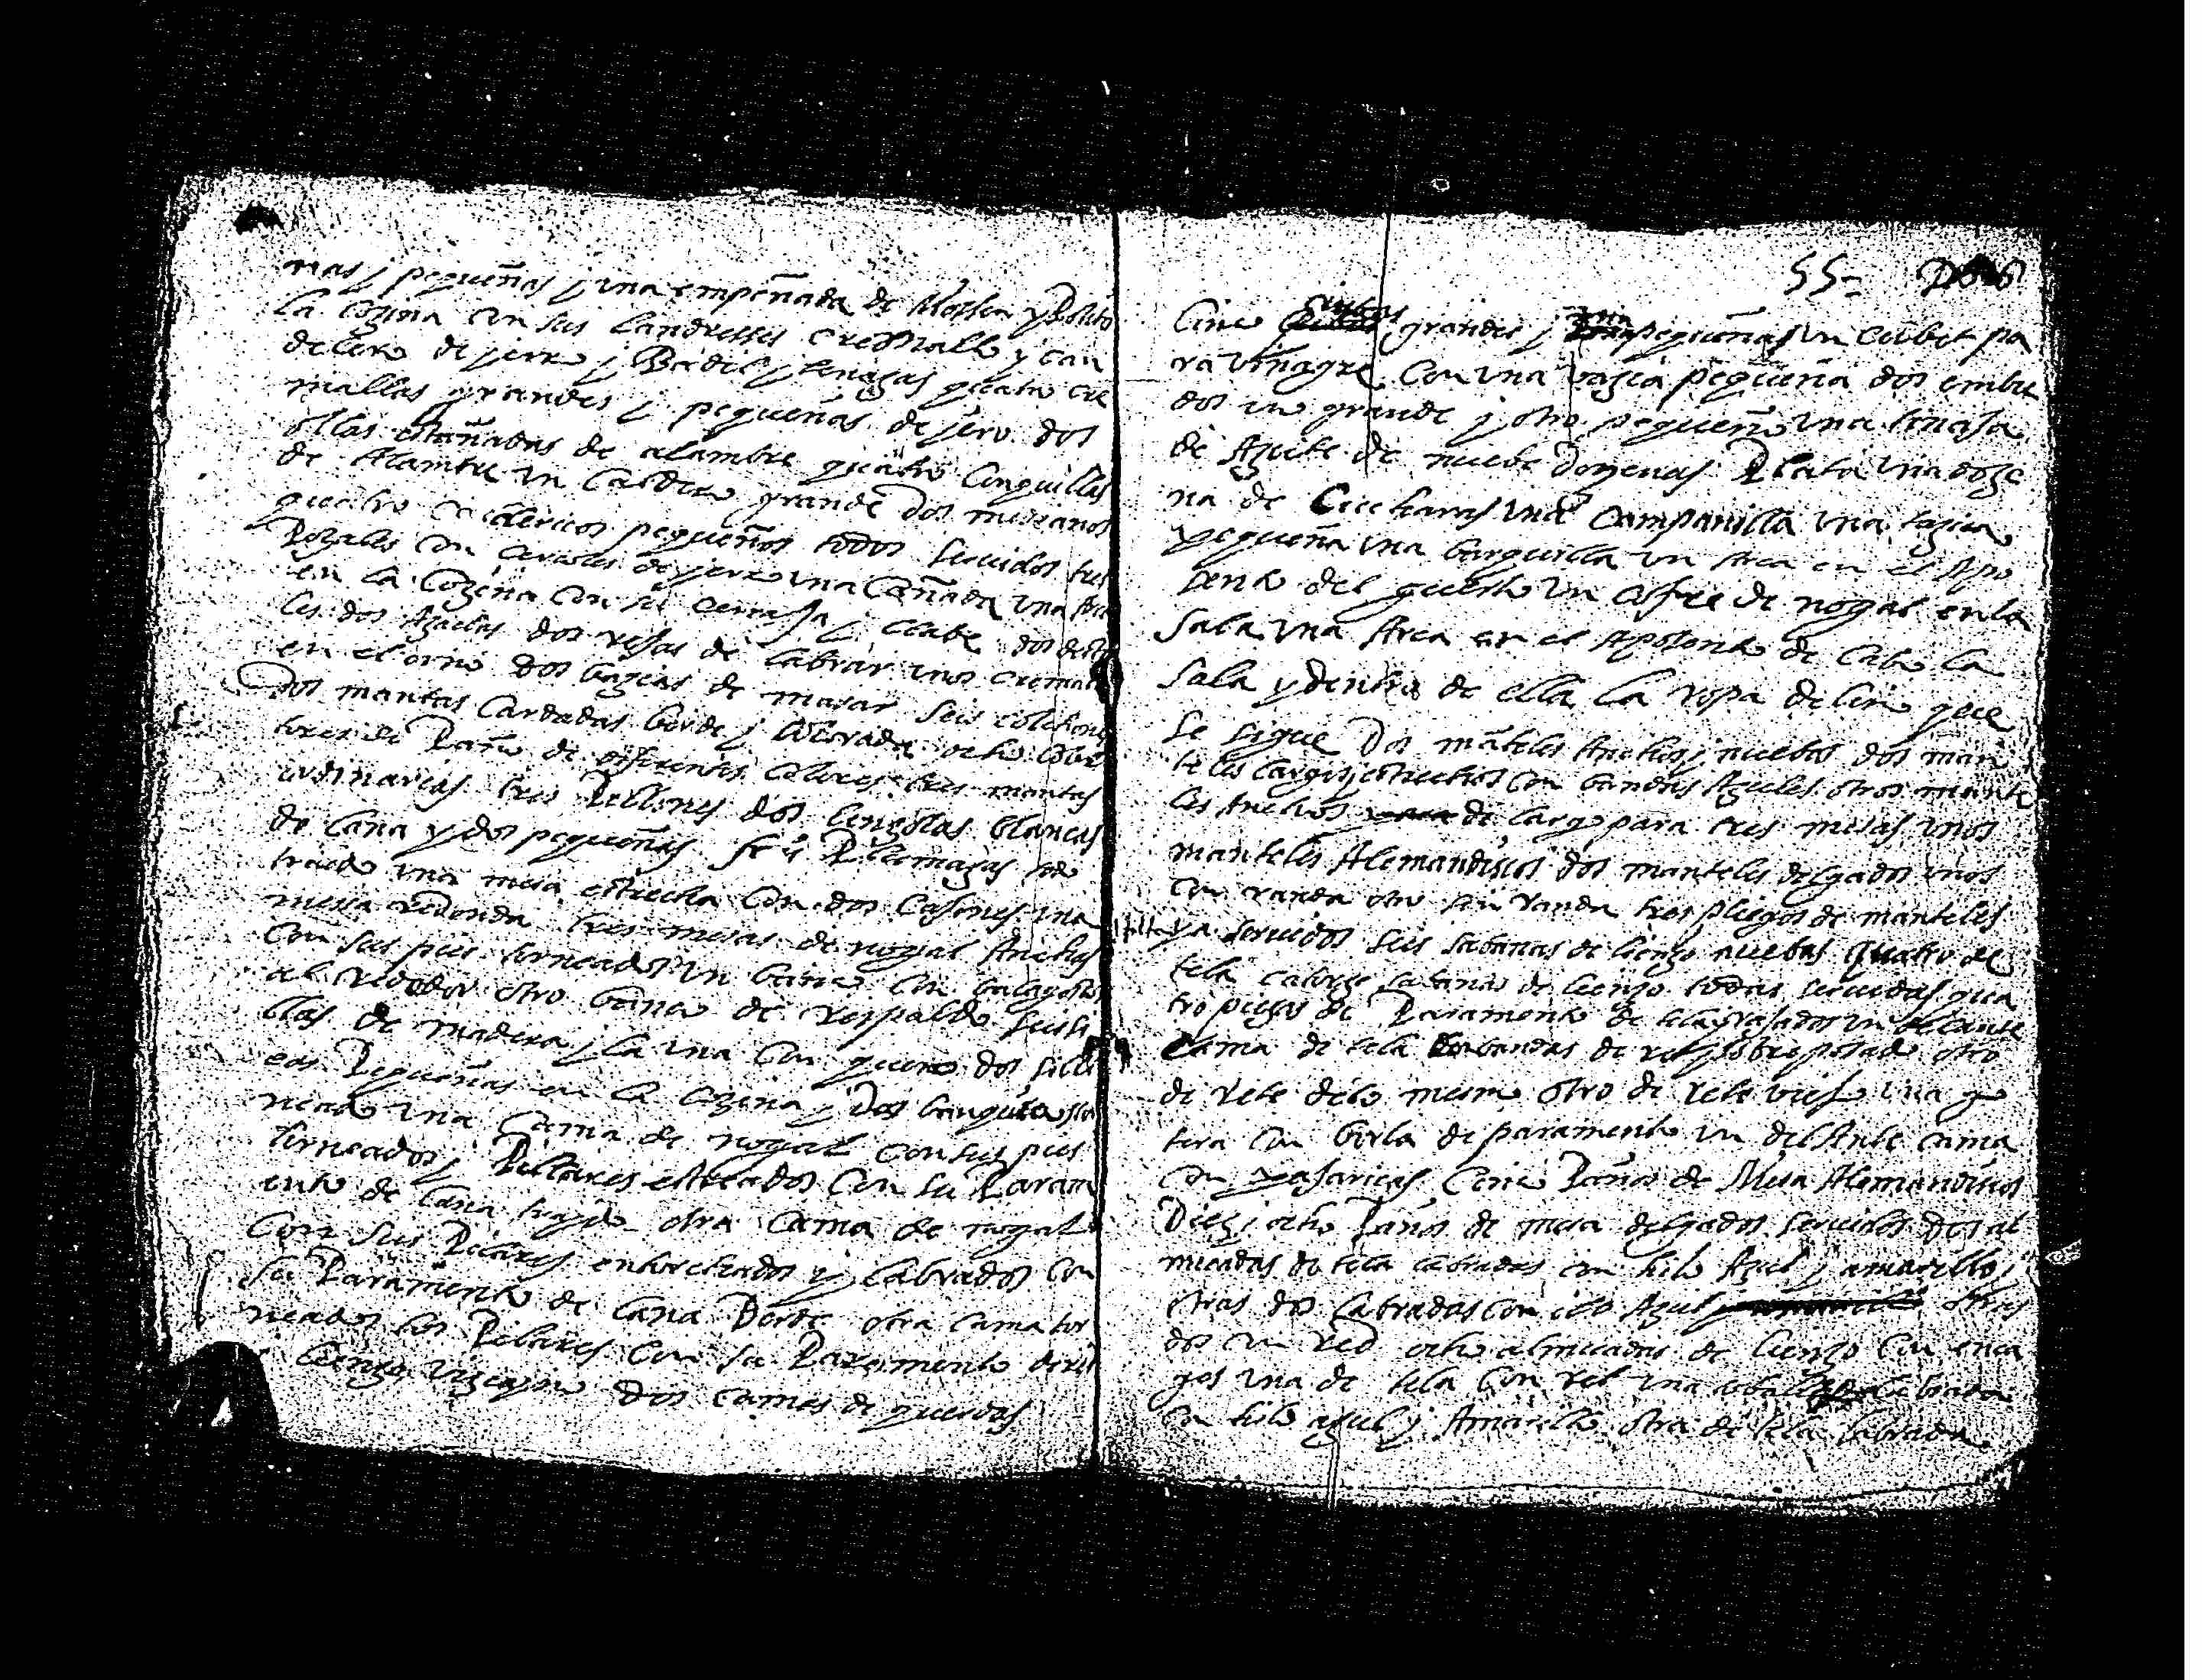 nas j pequeñas j una empeñada de Mossen ypolito
la cozina con sus landresses cremallo y can
delero de jerro j Badil j tenazas quatro cre
mallos grandes j pequeños de jero dos
ollas estañadas de alambre quatro Conquillas
de Alambre un Caldero grande Dos medianos
quatro caldericos pequeños todos seruidos tres
Pozales con cercoles de jerro una Cañada una Arca
en la Cozina con su cerraja j clabe dos destra
les dos Azadas dos rejas de labrar unos cremallos
en el orno dos bazias de masar seis colchones
Dos mantas Cardadas berde j colorada ocho cober
tores de Paño de diferentes colores tres mantas
ordinarias tres Pellones dos lenzolas blancas
de lana y dos pequeñas seis Plumazas todo
traido una mesa estrecha con dos Cajones una
mesa redonda tres mesas de nogal Anchas
Con sus pies torneados un banco con balagostes
al rededor otro banco de Respaldo seis si
llas de madera j la una con quero dos silli
cas Pequeñas en la cozina j Dos banquetas
neado una Cama de nogal con sus pies
torneados j Pillares estriados Con su Param
ento de lana trajdo otra Cama de nogal
Con sus Pilares entorchados y labrados con
su Paramento de lana Berde otra Cama tor
neados los Pilares Con su Paramento de
lienzo Vizcayno Dos camas de querdas
55= D
Cinco grandes j una pequeña un cubet pa
ra vinagre Con una bazia pequeña dos embu
dos uno grande j otro pequeño una tinaja
de Azeite de nueve dozenas Plata una doze
na de Cucharas una Campanilla una tazica
pequeña una barquilla un Arca en el Apo
sento del guerto un cofre de nogal en la
Sala una Arca en el Aposento de Cabo la
Sala y dentro de ella la ropa de lino que
se sigue Dos manteles Anchos j nuebos dos man
teles largos j estrechos con bandas Azules otros mante
les Anchos de largo para tres mesas unos
manteles Alemandiscos dos manteles delgados unos
con randa otro sin randa tres pliegos de manteles
falta ya seruidos seis sabanas de lienzo nuebas quatro de
tela catorze sabanas de lienzo todas seruidas qua
tro piezas de Paramento de tela un delante
Cama de tela con bandas de ret j sobreposado otro
de rete delo mesmo otro de rete viejo una go
tera con borla de paramento un delante cama
con pajaricas Cinco Paños de Mesa Alemandiscos
Diez j ocho Paños de mesa delgados seruidos dos al
muadas de tela labradas con hilo Azul j amarillo j
otras dos labradas con ilo Azul otras
dos con red ocho almuadas de lienzo Con enca
gos una de tela Con ret una labrada
con hilo azul j Amarillo otra de tela labrada